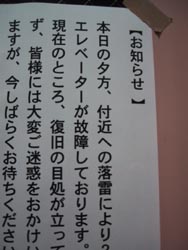 【お知らせ】
本日の夕方、付近への落雷により
エレベーターが故障しております。
現在のところ、復旧の目処が立って
ず、皆様には大変ご迷惑をおかけい
ますが、今しばらくお待ちください